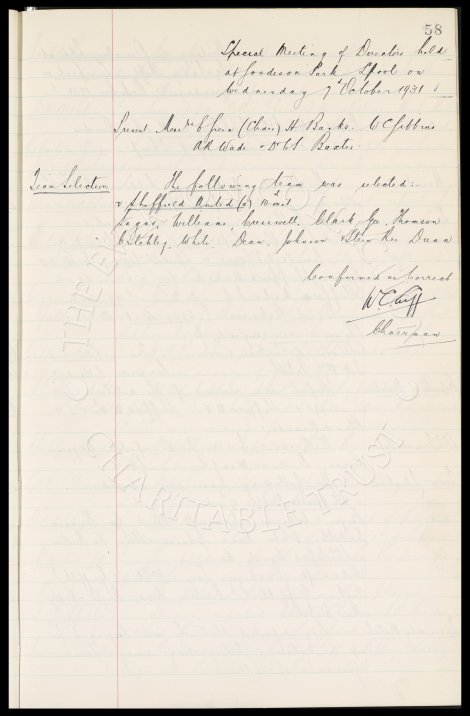 58
Special Meeting of Directors held
at Goodison Park L'pool on
Wednesday 7th October 1931
Present Messrs E Green (Chair) H Banks. W C Gibbins
A R Wade & Dr C S Baxter.
Team Selection The following team was selected:-
v Sheffield United (a) 10th inst
Sagar, Williams, Cresswell, Clark, Gee, Thomson
Critchley, White. Dean, Johnson & Stein Res Dunn
Confirmed as Correct
W C Cuff
Chairman
CHARITABLE TRUST